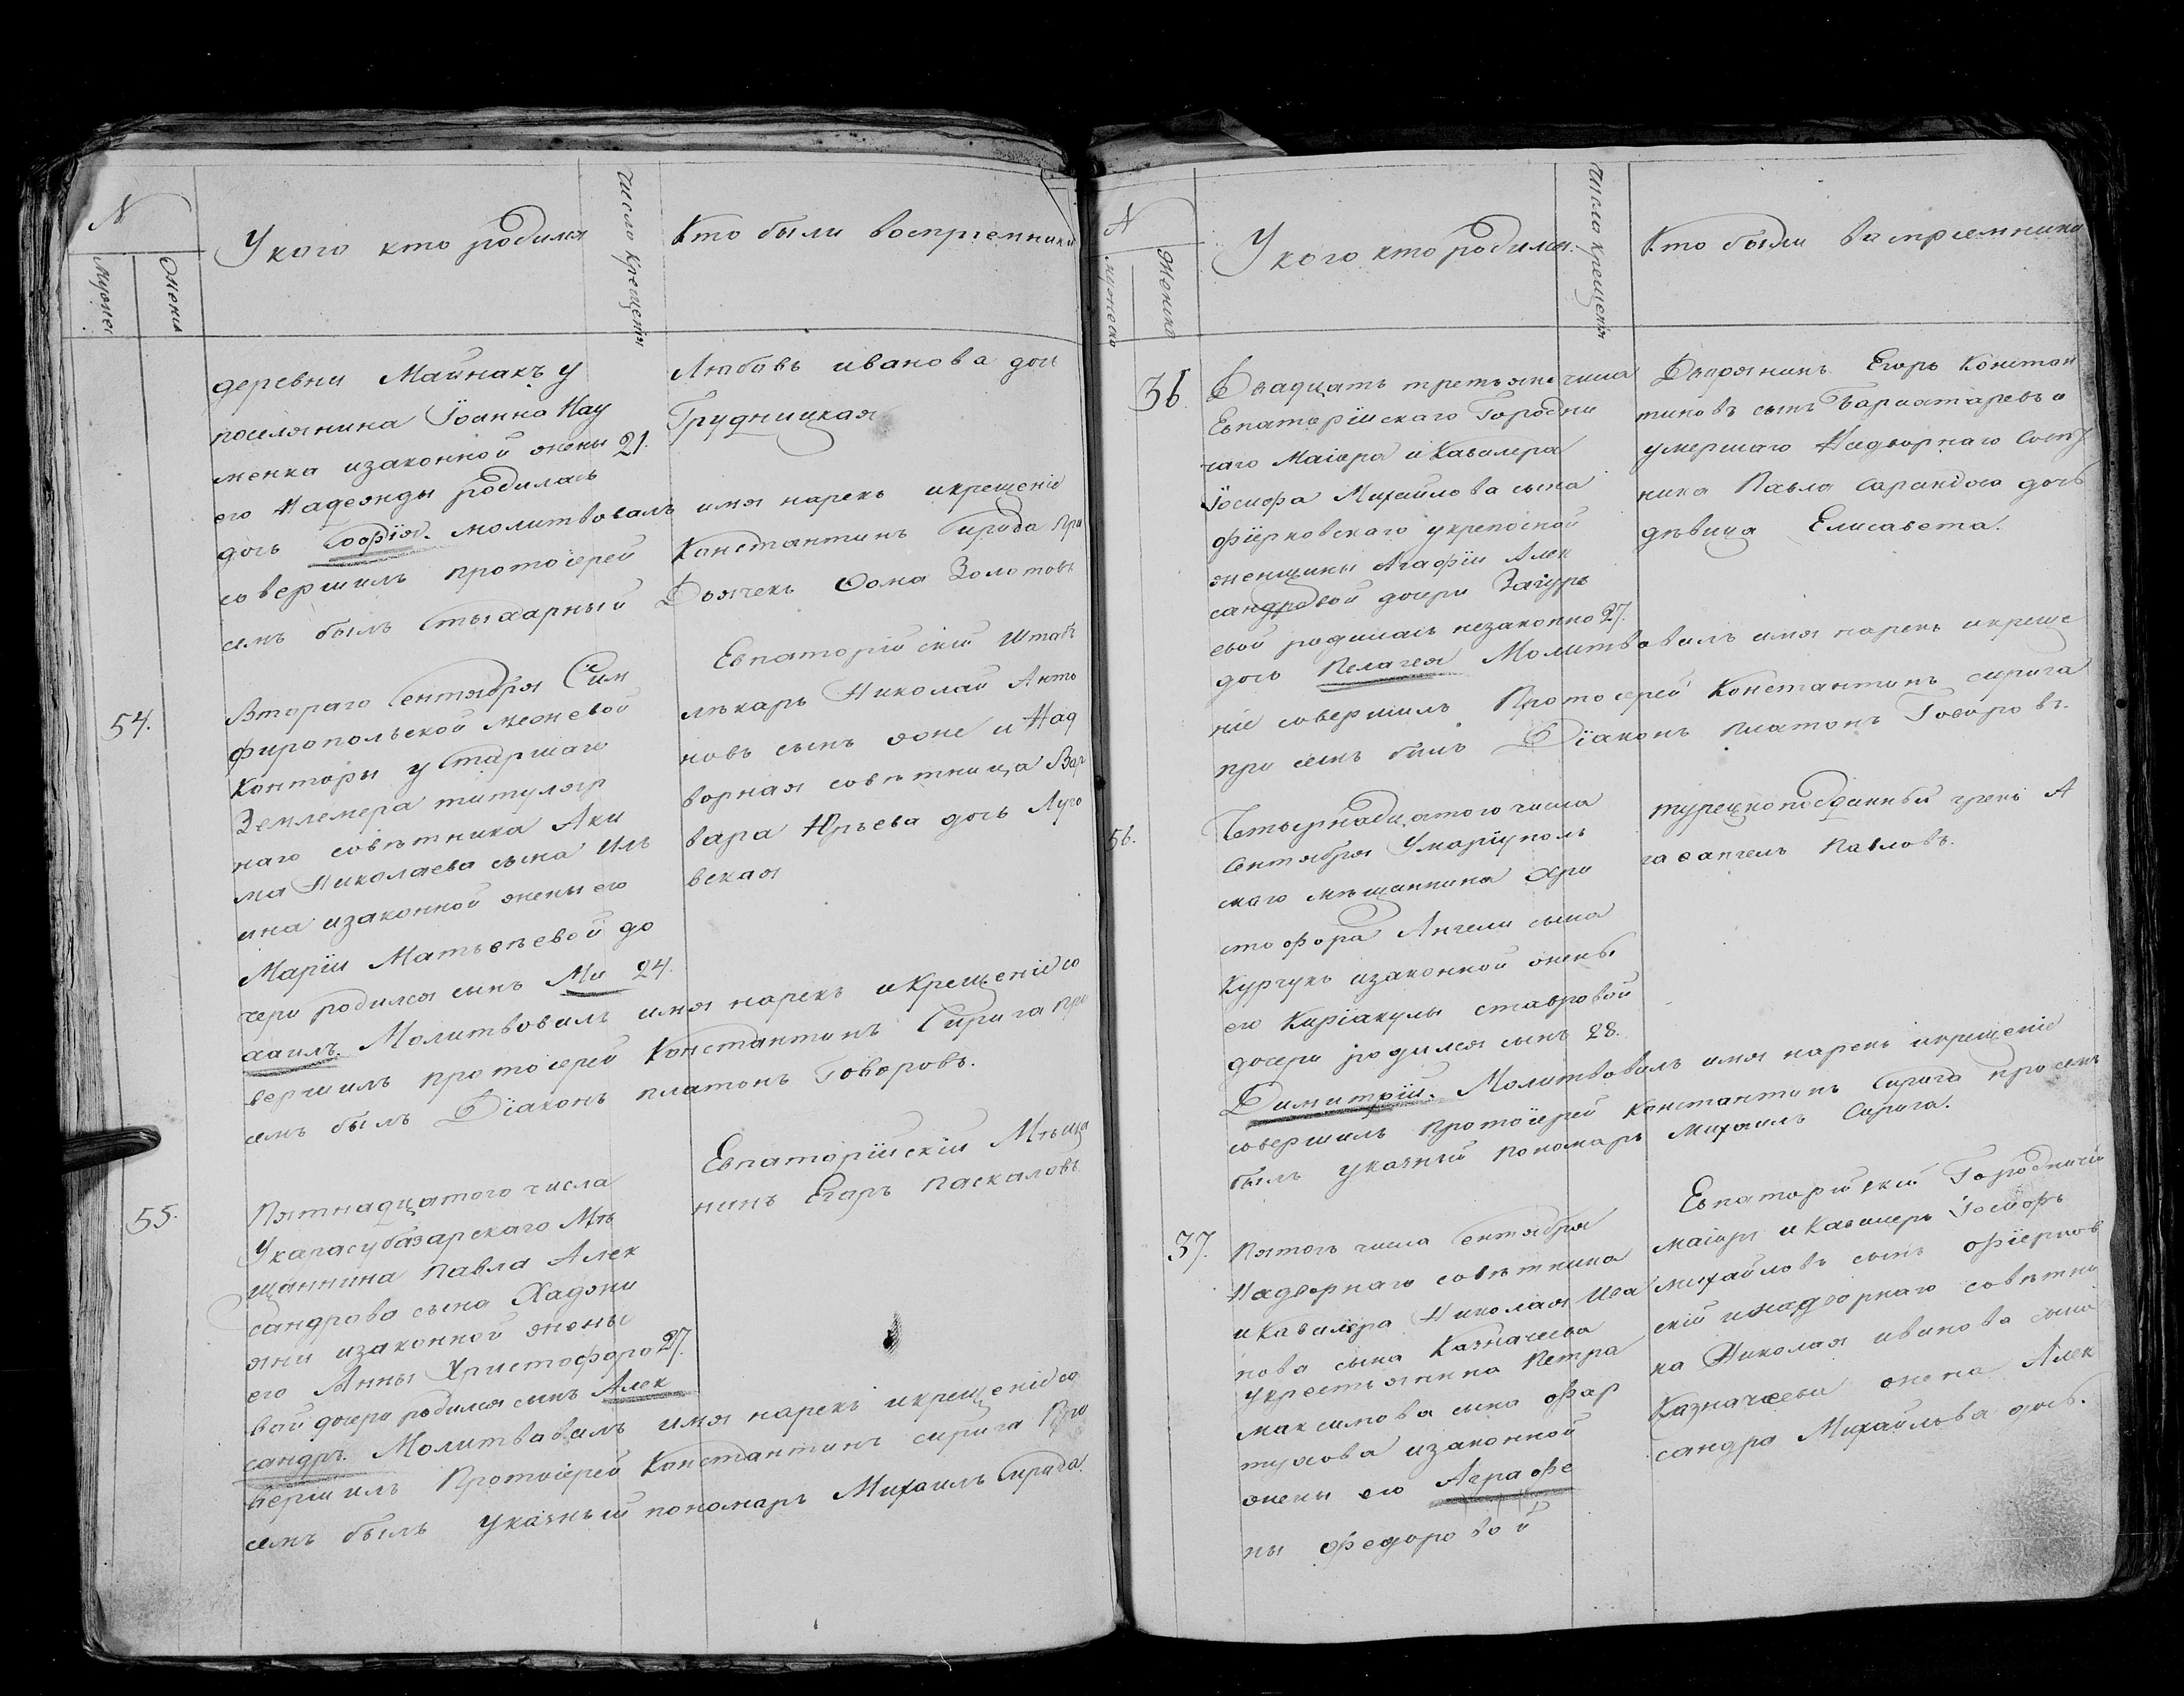 N
Мужес
Женс
У кого кто родился
Число крещенія
Кто были воспріемники
деревни Майнакъ у
поселянина Іоанна Нау
менка изаконной жены 21.
его Надежды родилась
дочь Софія. молитвовалъ имя нарекъ икрещеніе
совершилъ протоіерей Константинъ Сирига при
семъ былъ Стыхарный Дьячекъ Фома Золотовъ
Любовь иванова дочь
Грудницкая
54.
Втораго Сентября Сим
фиропольской межевой
Конторы у Старшаго
Землемера титуляр
наго совѣтника Аки
ма Николаева сына Иль
ина изаконной жены его
Маріи Матвеевой до
чери родился сынъ Ми 24.
хаилъ. Молитвовалъ имя нарекъ и крещеніе со
вершилъ протоіерей Константинъ Сирига при
семъ былъ Діаконъ платонъ Говоровъ.
Евпаторійскій Штабъ
лѣкарь Николай Анто
новъ сынъ и Над
ворная совѣтница Вар
вара Юрьева дочь Луго
вская
55.
Пятнадцатого числа
Укарасубазарскаго Мѣ
щаннина Павла Алек
сандрова сына Хаджи
изаконной жены
его Анны Христофоро 27.
вой дочери родился сынъ Алек
сандръ. Молитвовалъ имя нарекъ икрещеніе со
вершилъ Протоіерей Константинъ сирига При
семъ былъ указный пономарь Михаилъ Сирига.
Евпаторійскій Мѣща
нинъ Егоръ Паскаловъ
N
мужеско
Женско
У кого кто родился.
Числа крещенія
Кто были воспріемники
36
Двадцать третьяго числа
Евпаторійскаго Городни
чаго Маіора и Кавалера
Іосифа Михайлова сына
фіерковскаго укрепосной
женщины Агафіи Алек
сандровой дочери Загур
евой родилась незаконно 27.
дочь Пелагея Молитвовалъ имя нарекъ икреще
ніе совершилъ Протоіерей Константинъ сирига
при семъ былъ Діаконъ платонъ Говоровъ.
Дворянинъ Егоръ Констан
тиновъ сынъ и
умершаго Надворнаго Совѣт
ника Павла Сарандова дочь
дѣвица Елисавета.
56.
Четырнадцатого числа
Сентября Умаріуполь
скаго мѣщаннина Хри
стофора Ангели сына
Курчукъ изаконной жены
его Киріакулы ставровой
дочери родился сынъ 28.
Димитрій. Молитвовалъ имя нарекъ икрещеніе
совершилъ протоіерей Константинъ Сирига при семъ
былъ указный пономарь Михаилъ Сирига.
турецкоподданный грекъ А
гафангелъ Павловъ.
37.
Пятого числа Сентября
Надворнаго совѣтника
и Кавалера Николая Ива
нова сына Казначеева
укрестьянина Петра
максимова сына фар
тухова изаконной
жены его Аграфе
ны федоровой
Евпаторійскій Городничій
маіоръ и Кавалеръ Іосифъ
михайловъ сынъ фіерков
скій инадворнаго совѣтни
ка Николая иванова сына
Казначеева жена Алек
сандра Михайлова дочь.